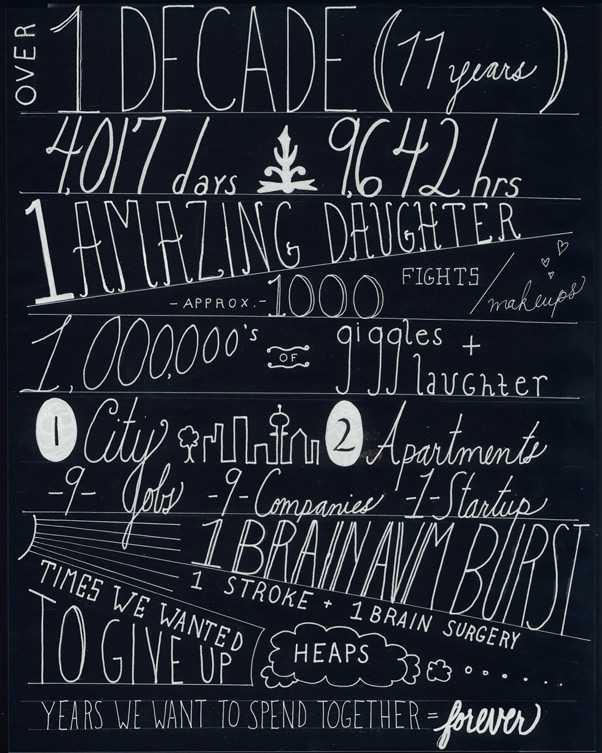 OVER 1 DECADE (11 years)
4,017 days 9,642 hrs
1 AMAZING DAUGHTER
- APPROX. - 1000 FIGHTS / makeups
1,000,000's OF giggles + laughter
1 City 2 Apartments
-9- Jobs -9- Companies -1- Startup
1 BRAIN AVM BURST
1 STROKE + 1 BRAIN SURGERY
TIMES WE WANTED
TO GIVE UP HEAPS
YEARS WE WANT TO SPEND TOGETHER = forever